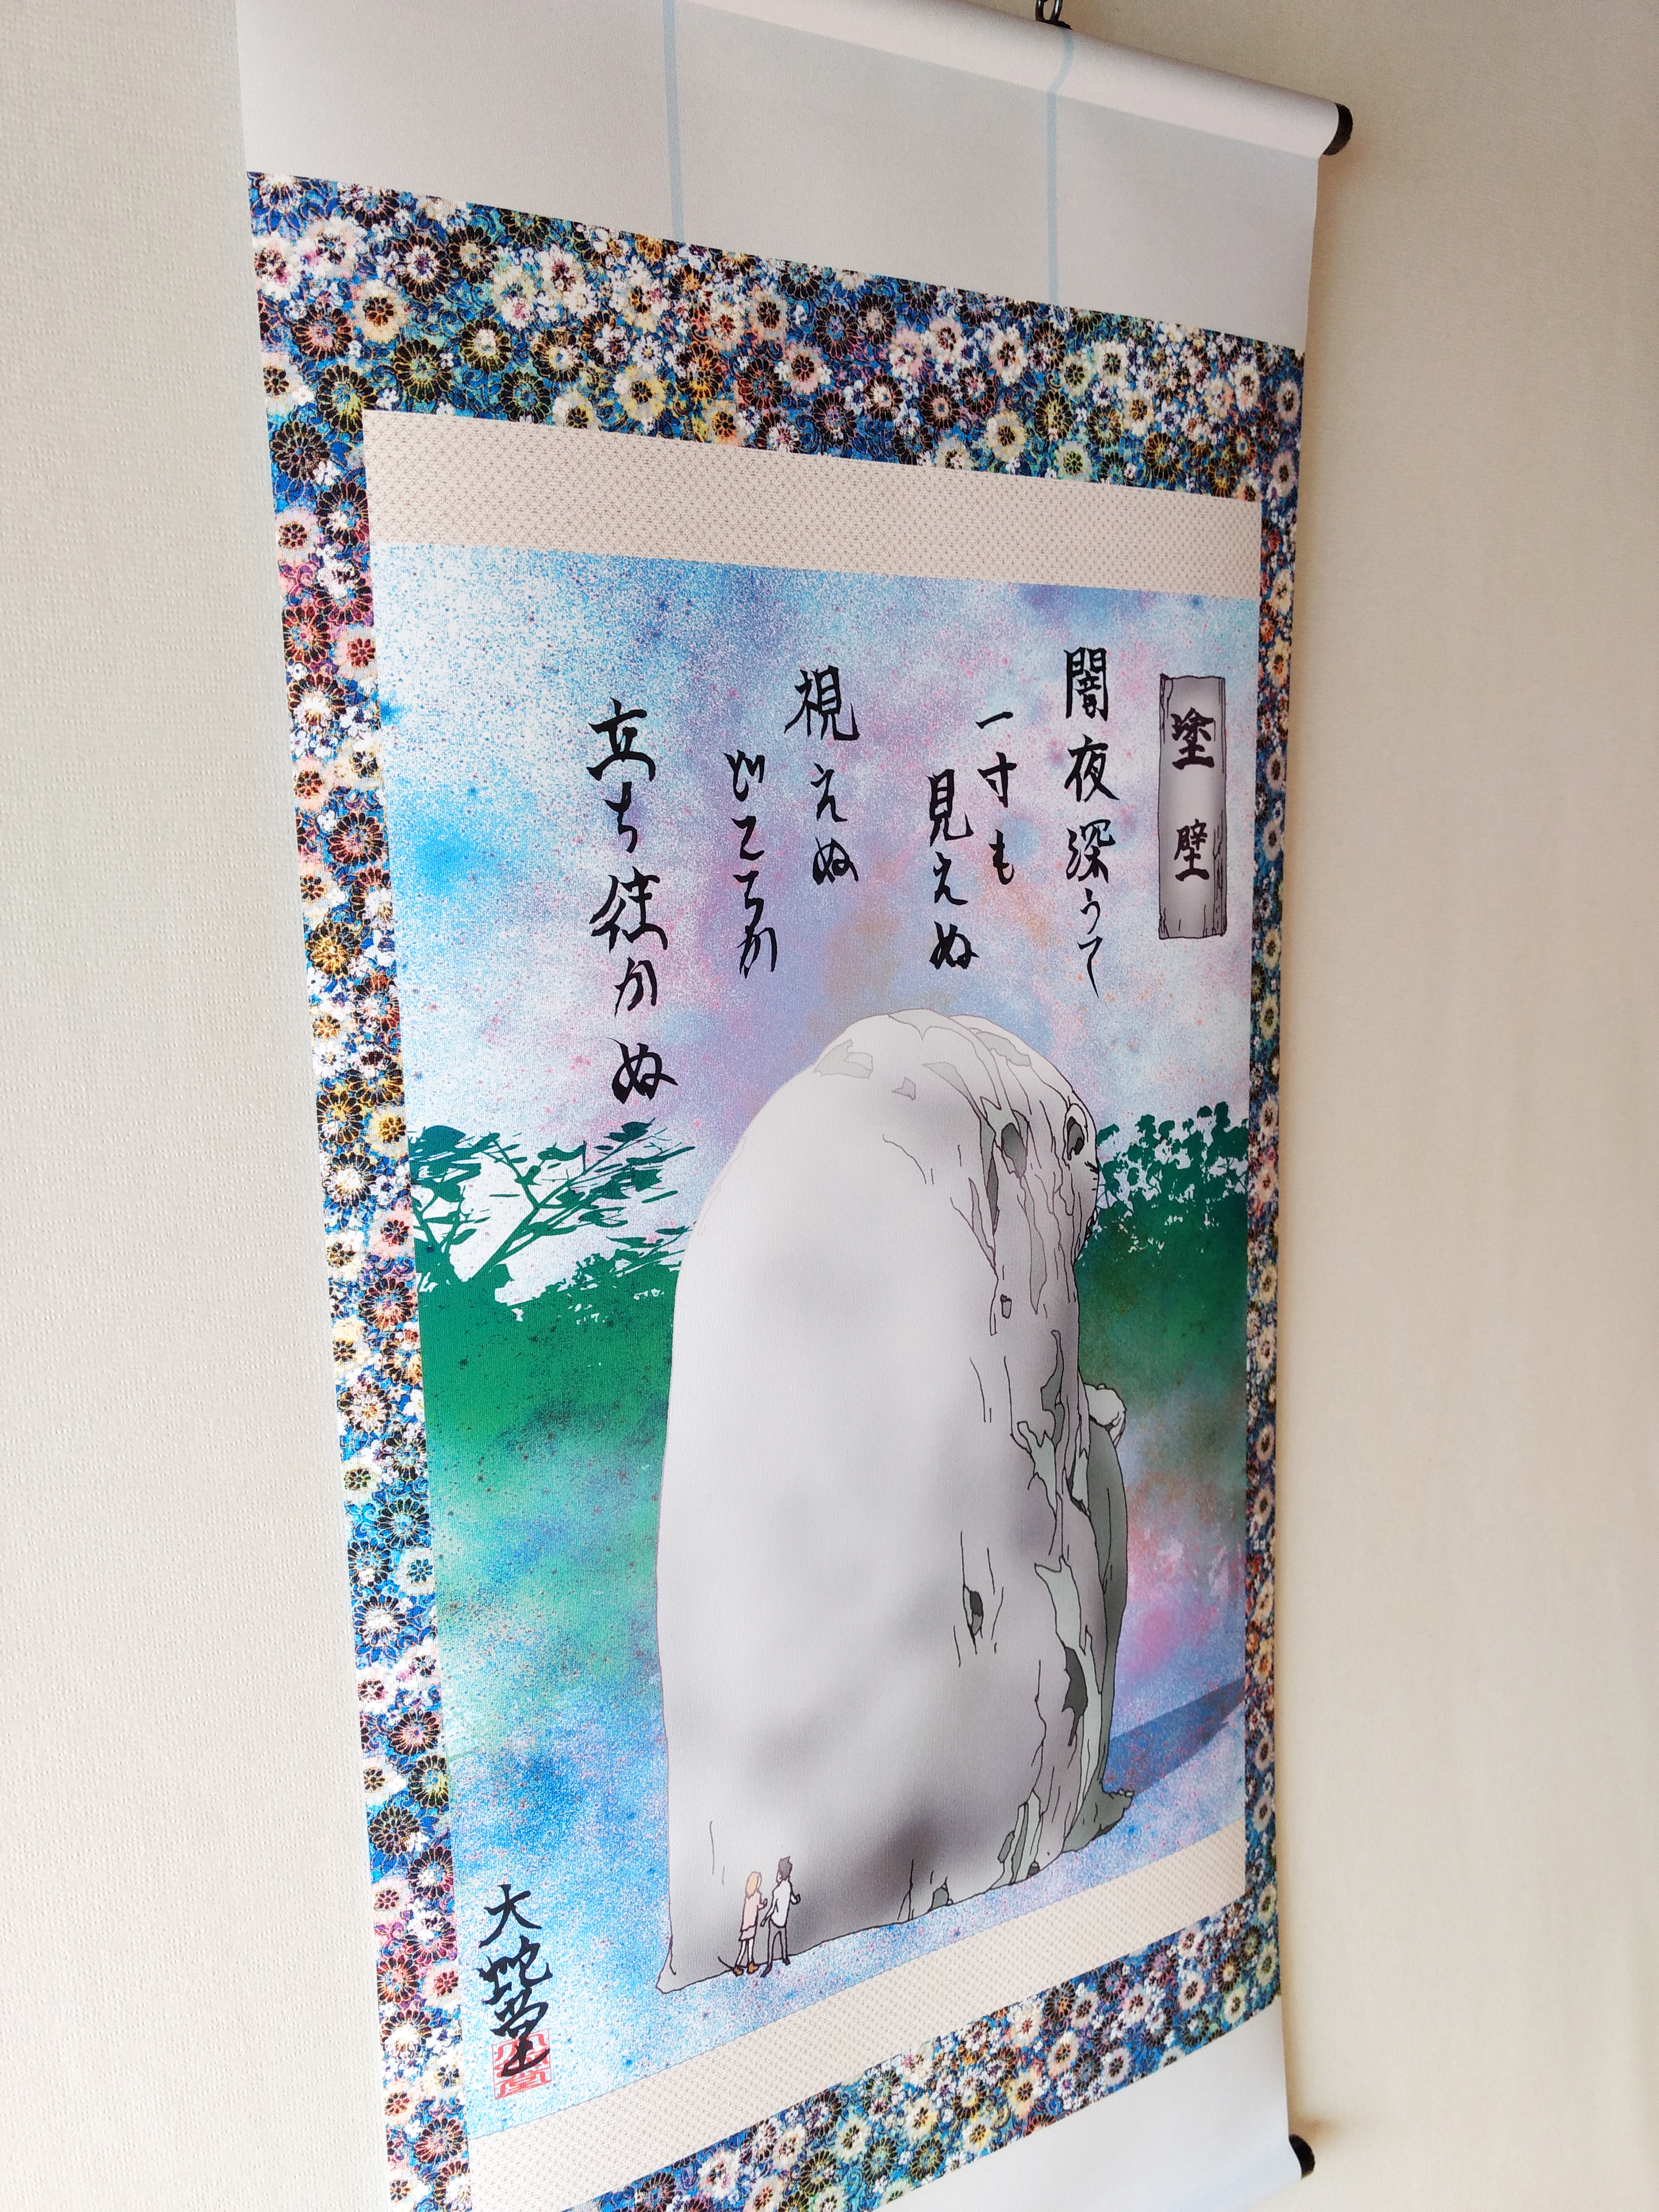 塗壁
闇夜深うて
一寸も
見えぬ
視えぬ
どころか
立ち往かぬ
大蛇堂